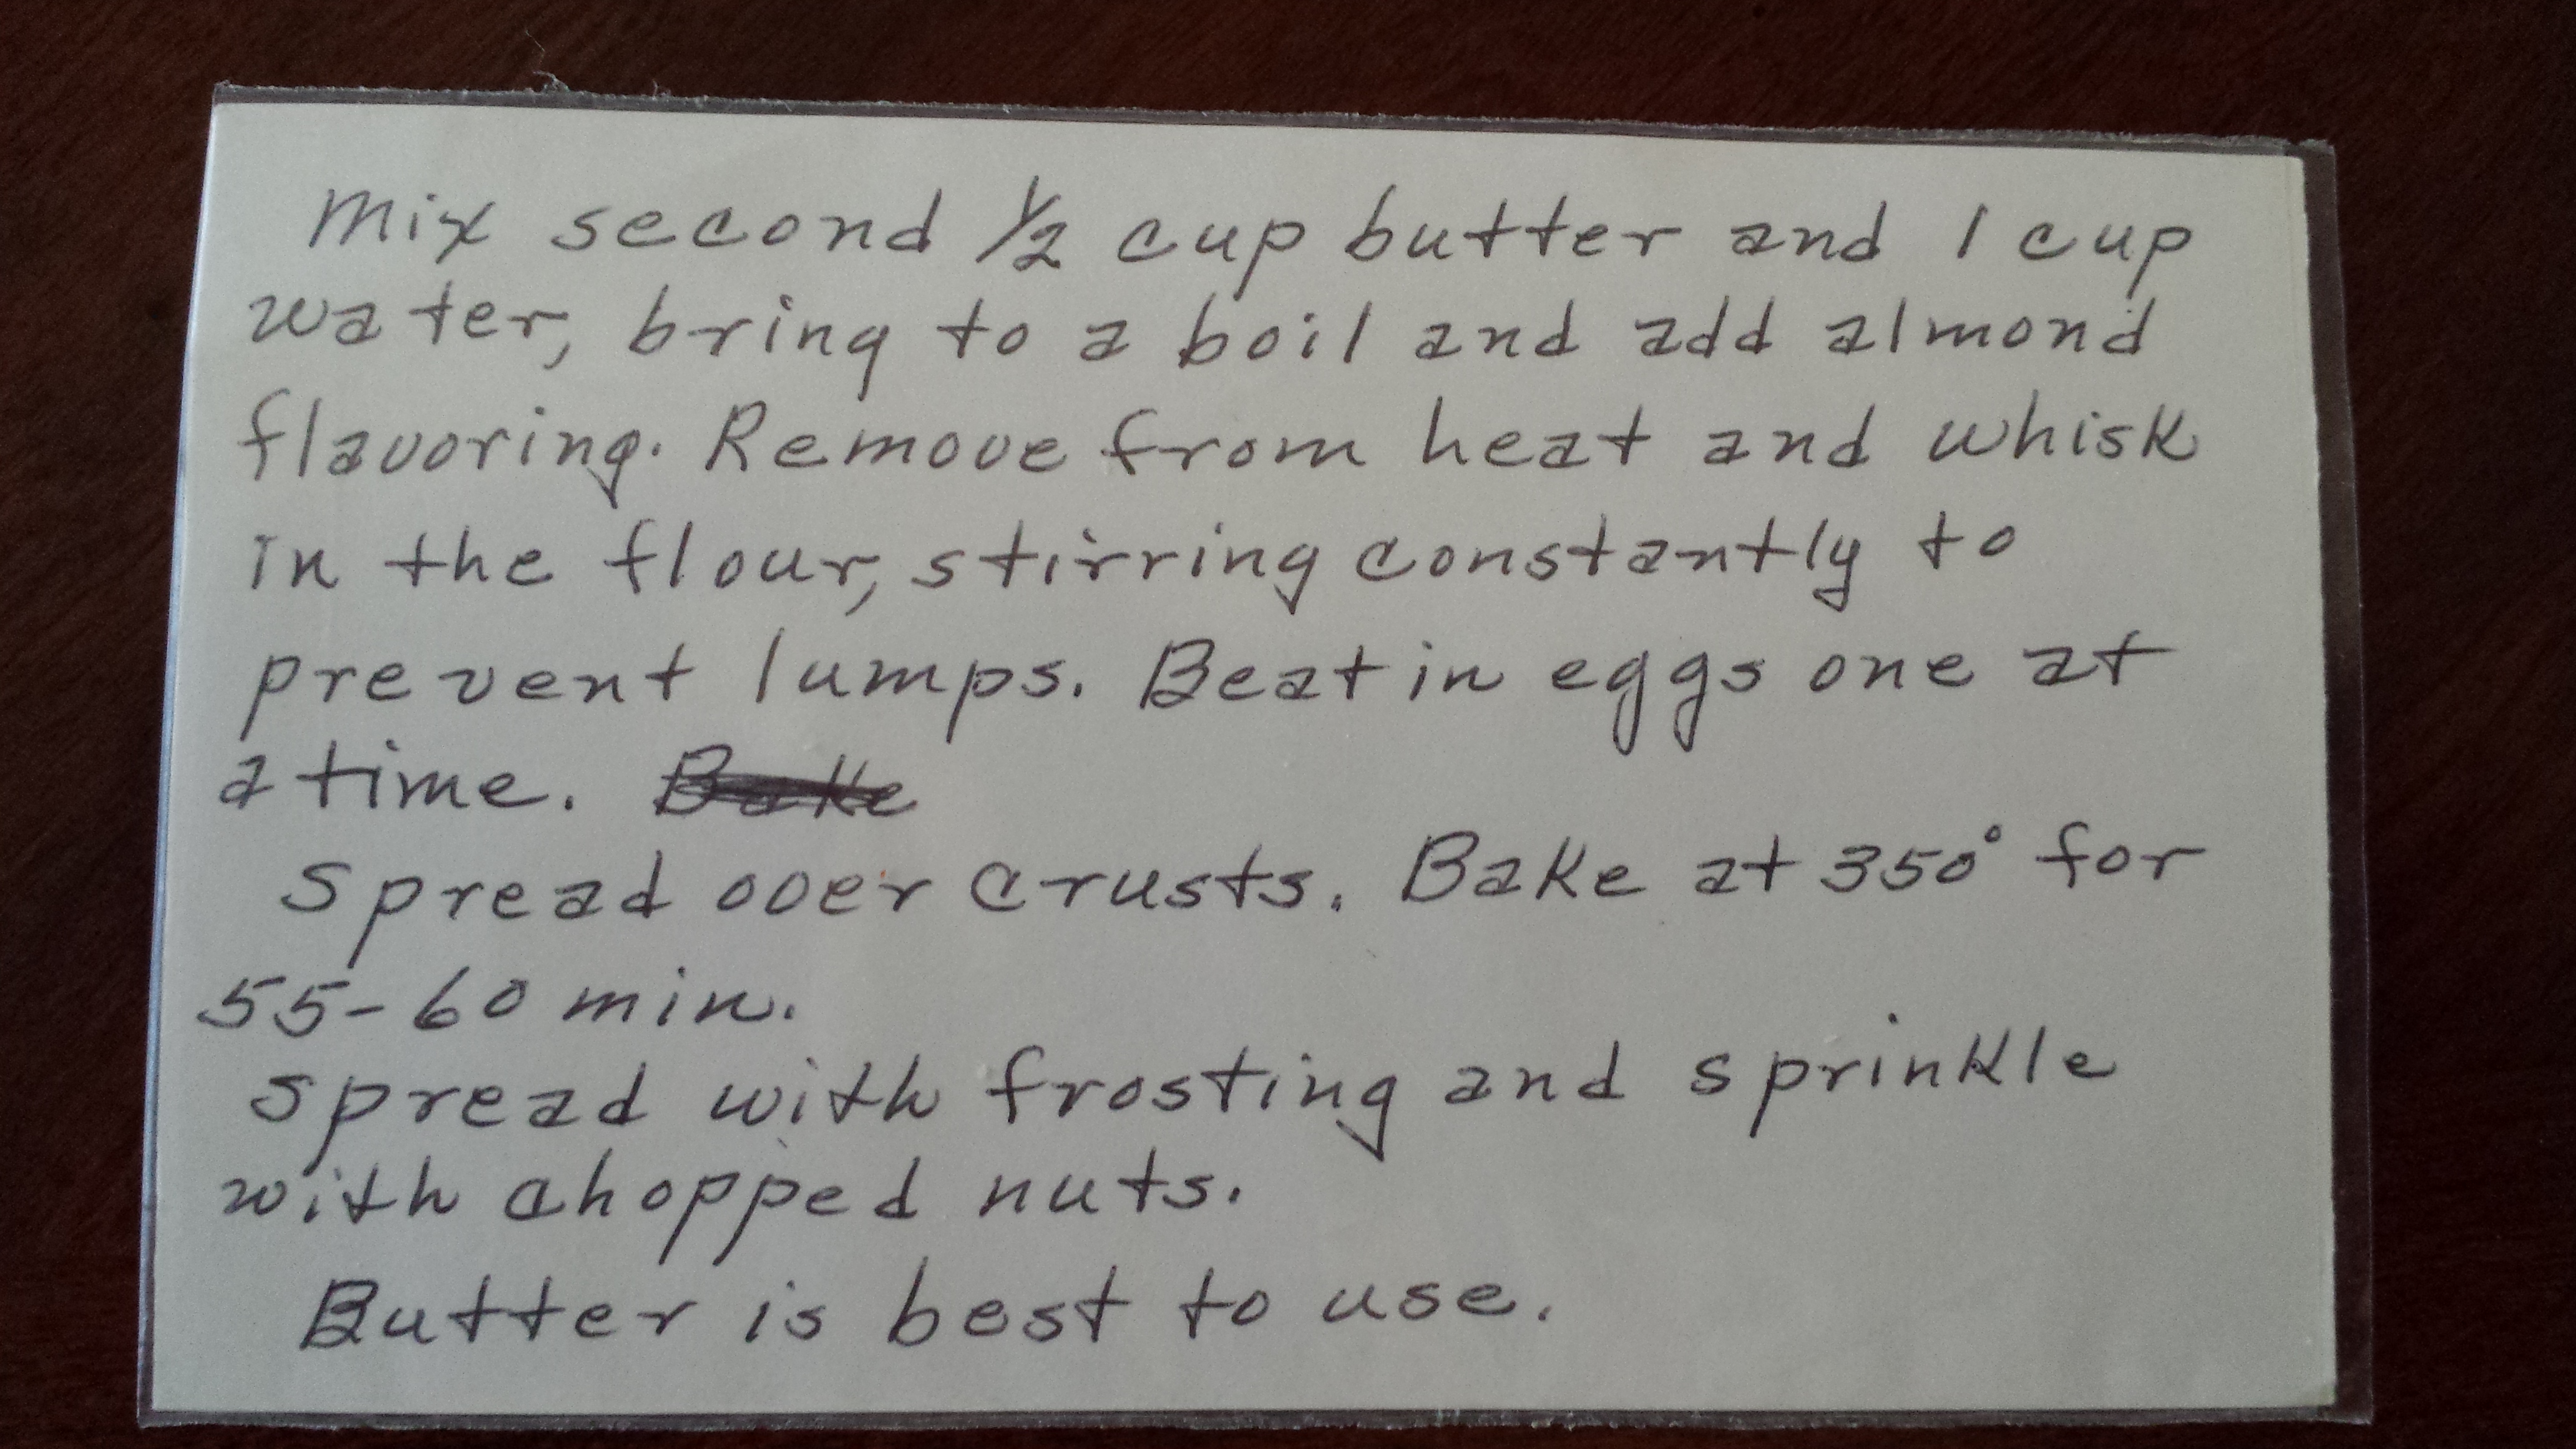 Mix second 1/2 cup butter and 1 cup
water, bring to a boil and add almond
flavoring. Remove from heat and whisk
in the flour, stirring constantly to
prevent lumps. Beat in eggs one at
a time. Bake
Spread over crusts. Bake at 350° for
55-60 min.
Spread with frosting and sprinkle
with chopped nuts.
Butter is best to use.